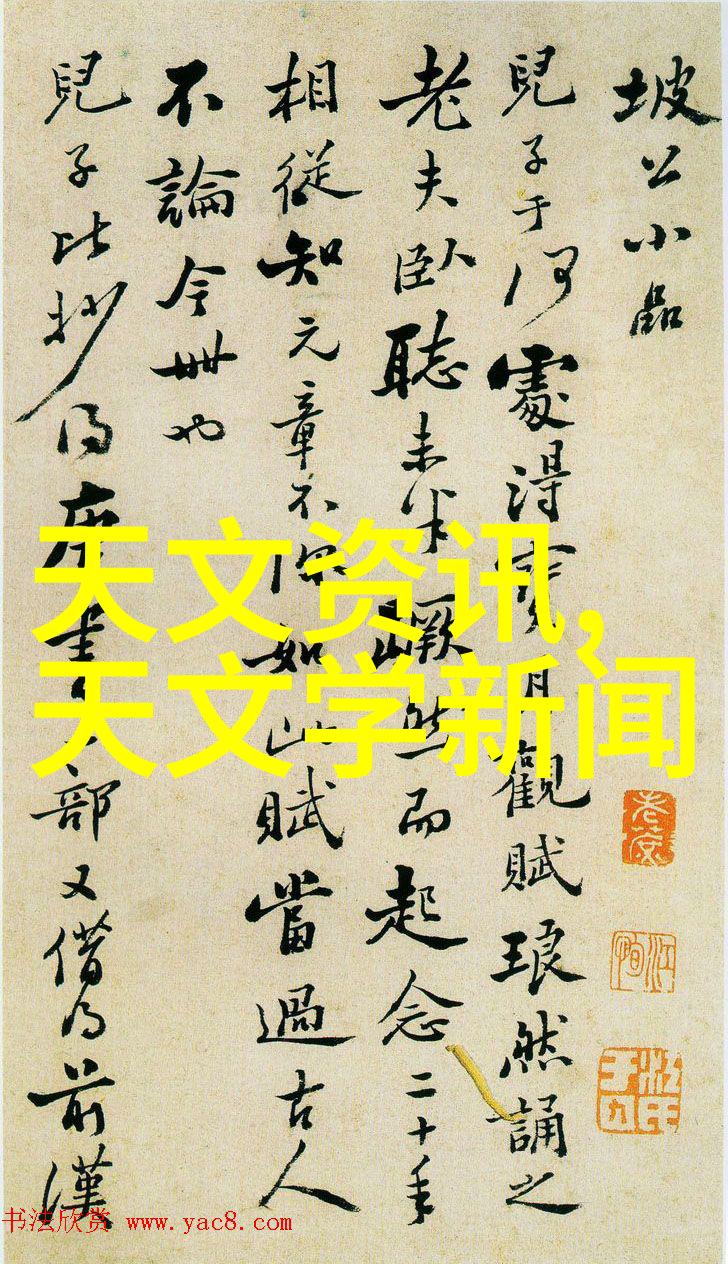 坡公小品
兒子于何處得寶月觀賦琅然誦之
老夫臥聽未半蹶然而起念二十年
相從知元章不盡如此賦當過古人
不論今世也
兒子比抄得唐書一部又借得前漢
天文资讯,
天文学新闻
书法欣赏 www.yac8.com